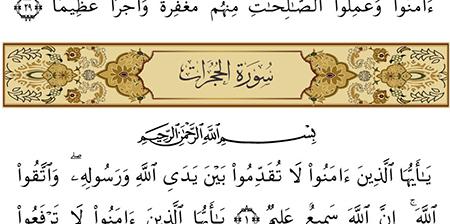 ءَامَنُوا۟ وَعَمِلُوا۟ ٱلصَّـٰلِحَـٰتِ مِنْهُم مَّغْفِرَةً وَأَجْرًا عَظِيمًۢا ٢٩
سُورَةُ الحُجُرَاتِ
بِسْمِ ٱللَّهِ ٱلرَّحْمَـٰنِ ٱلرَّحِيمِ
يَـٰٓأَيُّهَا ٱلَّذِينَ ءَامَنُوا۟ لَا تُقَدِّمُوا۟ بَيْنَ يَدَىِ ٱللَّهِ وَرَسُولِهِۦ ۖ وَٱتَّقُوا۟
ٱللَّهَ ۚ إِنَّ ٱللَّهَ سَمِيعٌ عَلِيمٌ ١ يَـٰٓأَيُّهَا ٱلَّذِينَ ءَامَنُوا۟ لَا تَرْفَعُوٓا۟